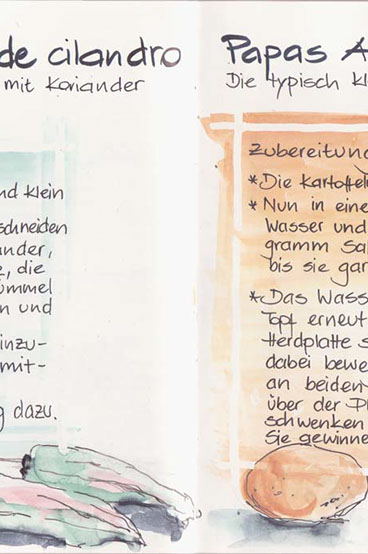 de cilandro
mit Koriander
nd klein
schneiden
ander,
, die
ümmel
n und
inzu-
mit-
g dazu.
Papas A
Die typisch kl
Zubereitung
*Die Kartoffeln
* Nun in eine
Wasser und
gramm Sal
bis sie gar
*Das Wass
Topf erneut
Herdplatte s
dabei bewe
an beiden
über der Pl
schwenken
Sie gewinne